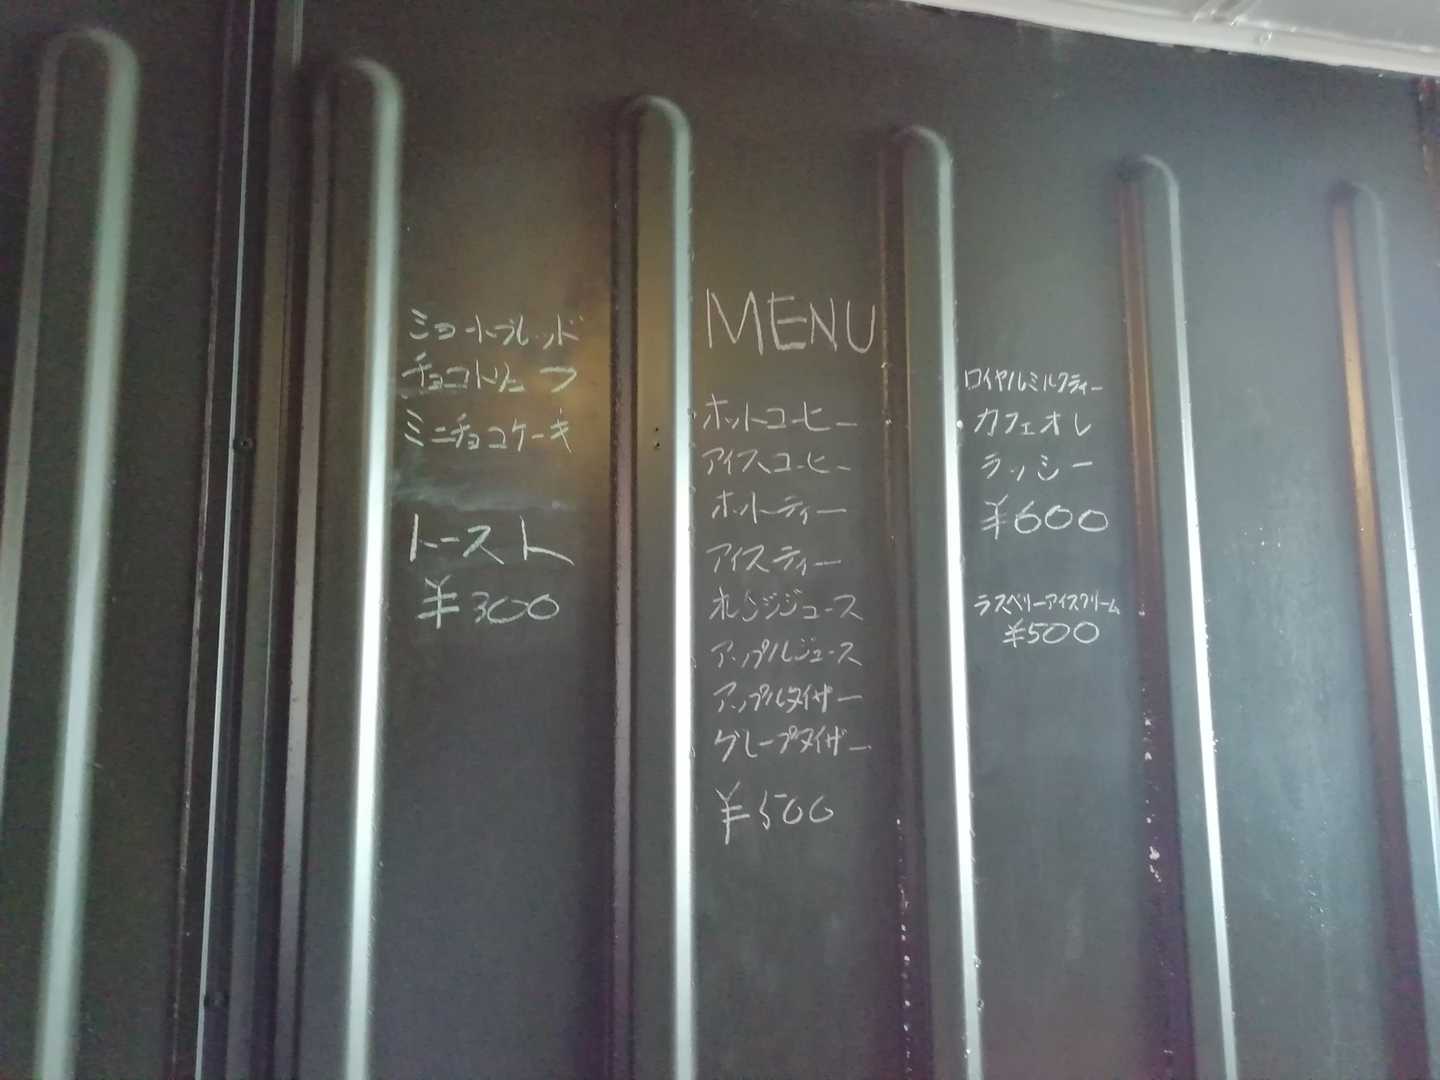 MENU
ミョートブレッド
チョコトリュフ
ミニチョコケーキ
トースト
¥300
ホットコーヒー
アイスコーヒー
ホットティー
アイスティー
オレンジジュース
アップルジュース
アップルタイザー
グレープタイザー
¥500
ロイヤルミルクティー
カフェオレ
ラッシー
¥600
ラズベリーアイスクリーム
¥500